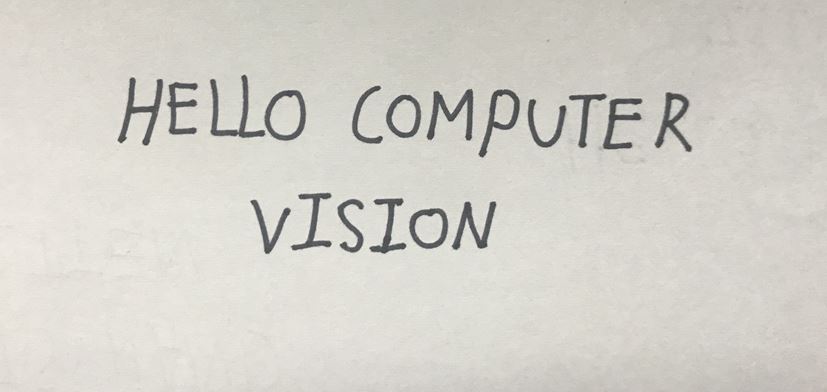 HELLO COMPUTER
VISION